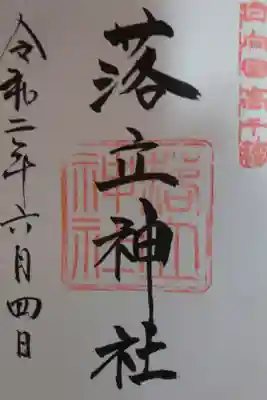 落立神社
落立
神社
令和二年六月四日